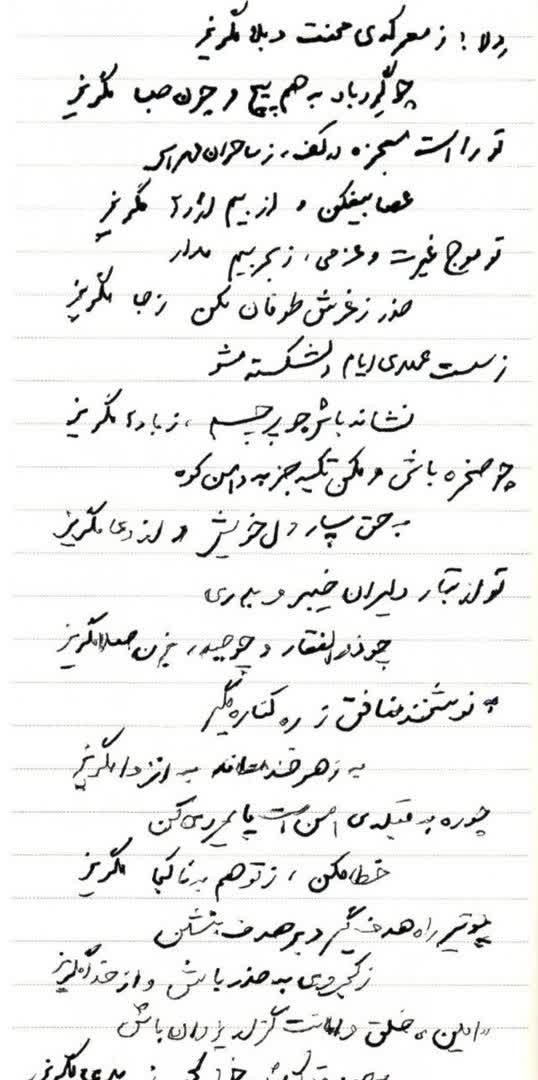 دلا! ز معرکه‌ی محنت و بلا مگریز
چو گردباد به هم پیچ و چون صبا مگریز
تو راست معجزه در کف، ز ساحران مهراس
عصا بیفکن و از بیم اژدها مگریز
تو موج غیرت و عزمی، ز بحر بیم مدار
حذر ز غرش طوفان مکن ز جا مگریز
ز سست عهدی ایام دلشکسته مشو
نشانه باش چو پرچم، ز باد‌ها مگریز
چو صخره باش و مکن تکیه جز به دامن کوه
به حق سپار دل خویش و از دعا مگریز
تو از تبار دلیران خیبر و بدری
چو ذوالفقار و چو حیدر، ز خون مگریز
به نوشخند منافق ز ره کناره مگیر
به زهرخند به انزوا مگریز
چو ره به قبله‌ی امن است پایمردی کن
خطا مکن، ز توهم به ناکجا مگریز
چو تیر راه هدف گیر و بر هدف بنشین
ز کجروی به حذر باش و از خدا مگریز
امین خلق و امانت گزار یزدان باش